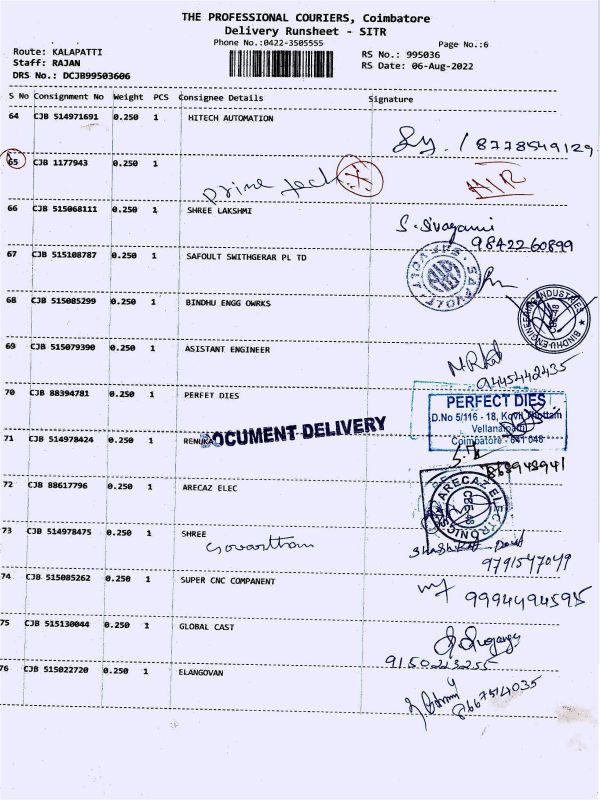 THE PROFESSIONAL COURIERS, Coimbatore
Delivery Runsheet - SITR
Phone No.:0422-3505555
Page No.:6
Route: KALAPATTI
RS No.: 995036
Staff: RAJAN
RS Date: 06-Aug-2022
DRS No.: DCJB99503606
S No Consignment No Weight PCS Consignee Details Signature
64 CJB 514971691 0.250 1 HITECH AUTOMATION
8778549129
65 CJB 1177943 0.250 1
prime tech X
AIR
66 CJB 515068111 0.250 1 SHREE LAKSHMI
S. Sivagami
9842260899
67 CJB 515108787 0.250 1 SAFOULT SWITHGERAR PL TD
68 CJB 515085299 0.250 1 BINDHU ENGG OWRKS
BINDHU ENGINEERING INDUSTRIES
CBE-48
69 CJB 515079390 0.250 1 ASISTANT ENGINEER
9445442435
70 CJB 88394781 0.250 1 PERFET DIES
PERFECT DIES
D.No 5/116 - 18, Kovil Thottam
Vellanaipatti
Coimbatore - 641 048
71 CJB 514978424 0.250 1 RENUKA
DOCUMENT DELIVERY
72 CJB 88617796 0.250 1 ARECAZ ELEC
ARECAZ ELECTRONIC
CBE-48
73 CJB 514978475 0.250 1 SHREE
9791547049
74 CJB 515085262 0.250 1 SUPER CNC COMPANENT
9994494595
75 CJB 515130044 0.250 1 GLOBAL CAST
9150213255
76 CJB 515022720 0.250 1 ELANGOVAN
8667514035